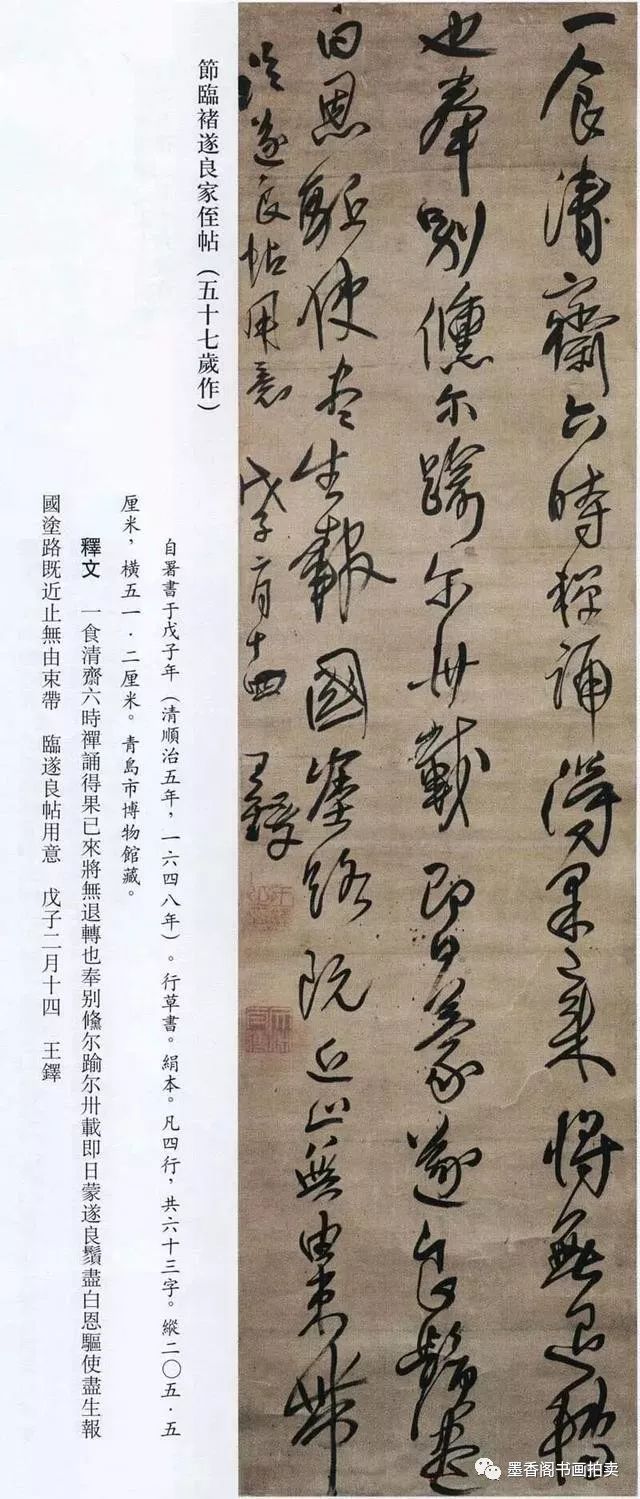 一食清齋六時禪誦得果已來將無退轉
也奉別儵尔踰尔卅載即日蒙遂良鬚盡
白恩驅使盡生報國塗路既近止無由束帶
臨遂良帖用意 戊子二月十四 王鐸
節臨褚遂良家侄帖（五十七歲作）
自署書于戊子年（清順治五年，一六四八年）。行草書。絹本。凡四行，共六十三字。縱二〇五·五
厘米，橫五一·二厘米。青島市博物館藏。
釋文 一食清齋六時禪誦得果已來將無退轉也奉別儵尔踰尔卅載即日蒙遂良鬚盡白恩驅使盡生報
國塗路既近止無由束帶 臨遂良帖用意 戊子二月十四 王鐸
墨香阁书画拍卖